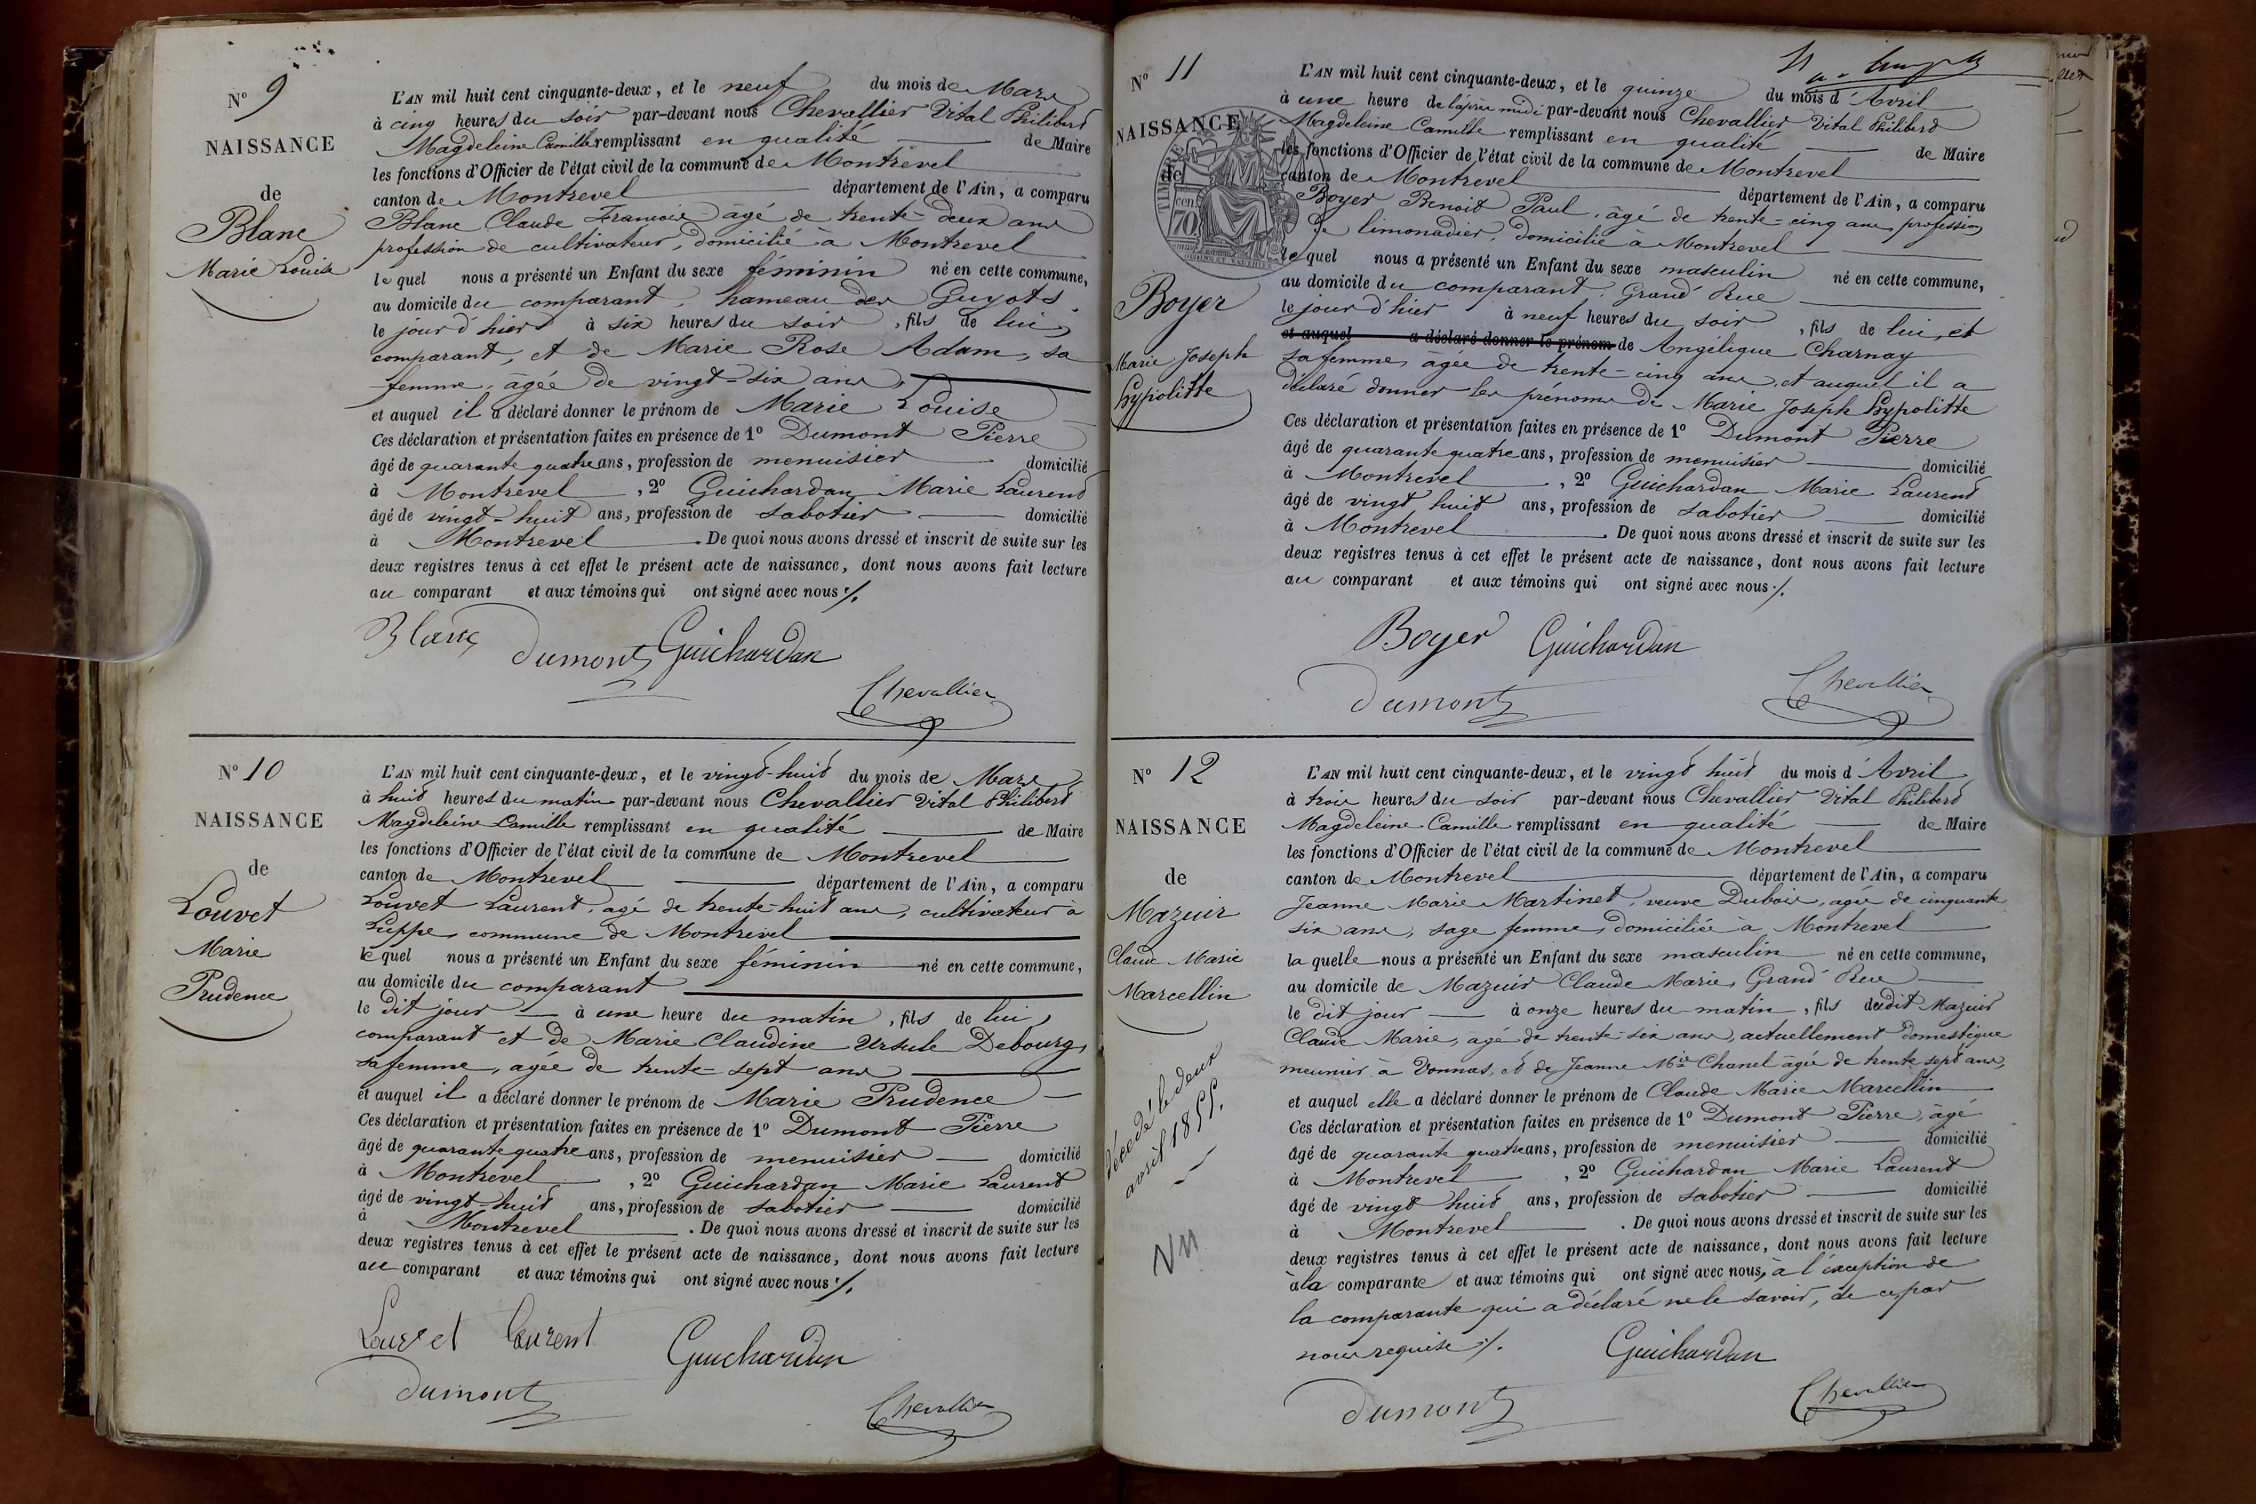 Nº 9
NAISSANCE
de
Blanc
Marie Louise
L'AN mil huit cent cinquante-deux, et le neuf du mois de Mars
à cinq heures du soir par-devant nous Chevallier Vital Philibert
Magdeleine Camille remplissant en qualité de Maire
les fonctions d'Officier de l'état civil de la commune de Montrevel
canton de Montrevel département de l'Ain, a comparu
Blanc Claude François âgé de trente-deux ans
profession de cultivateur, domicilié à Montrevel
lequel nous a présenté un Enfant du sexe féminin né en cette commune,
au domicile du comparant, hameau des Guyots
le jour d'hier à six heures du soir, fils de lui
comparant, et de Marie Rose Adam, sa
femme, âgée de vingt-six ans,
et auquel il a déclaré donner le prénom de Marie Louise
Ces déclaration et présentation faites en présence de 1º Dumont Pierre
âgé de quarante quatre ans, profession de menuisier domicilié
à Montrevel, 2º Guichardan Marie Laurent
âgé de vingt-huit ans, profession de sabotier domicilié
à Montrevel. De quoi nous avons dressé et inscrit de suite sur les
deux registres tenus à cet effet le présent acte de naissance, dont nous avons fait lecture
au comparant et aux témoins qui ont signé avec nous ./.
Blanc Dumont Guichardan
Chevallier
Nº 10
NAISSANCE
de
Louvet
Marie
Prudence
L'AN mil huit cent cinquante-deux, et le vingt-huit du mois de Mars
à huit heures du matin par-devant nous Chevallier Vital Philibert
Magdeleine Camille remplissant en qualité de Maire
les fonctions d'Officier de l'état civil de la commune de Montrevel
canton de Montrevel département de l'Ain, a comparu
Louvet Laurent, agé de trente-huit ans, cultivateur à
Luppe, commune de Montrevel
lequel nous a présenté un Enfant du sexe féminin né en cette commune,
au domicile du comparant
le dit jour à une heure du matin, fils de lui,
comparant et de Marie Claudine Ursule Debourg,
sa femme, agée de trente-sept ans
et auquel il a déclaré donner le prénom de Marie Prudence
Ces déclaration et présentation faites en présence de 1º Dumont Pierre
âgé de quarante quatre ans, profession de menuisier domicilié
à Montrevel, 2º Guichardan Marie Laurent
âgé de vingt-huit ans, profession de sabotier domicilié
à Montrevel. De quoi nous avons dressé et inscrit de suite sur les
deux registres tenus à cet effet le présent acte de naissance, dont nous avons fait lecture
au comparant et aux témoins qui ont signé avec nous ./.
Louvet Laurent Guichardan
Dumont
Chevallier
Nº 11
NAISSANCE
de
TIMBRE
70 cen
Boyer
Marie Joseph
Hypolitte
L'AN mil huit cent cinquante-deux, et le quinze du mois d'Avril
à une heure de l'après midi par-devant nous Chevallier Vital Philibert
Magdeleine Camille remplissant en qualité de Maire
les fonctions d'Officier de l'état civil de la commune de Montrevel
canton de Montrevel département de l'Ain, a comparu
Boyer Benoit Paul, âgé de trente-cinq ans profession
de limonadier, domicilié à Montrevel
lequel nous a présenté un Enfant du sexe masculin né en cette commune,
au domicile du comparant, Grand' Rue
le jour d'hier à neuf heures du soir, fils de lui, et
et auquel a déclaré donner le prénom de Angélique Charnay
sa femme, âgée de trente-cinq ans, et auquel il a
déclaré donner les prénoms de Marie Joseph Hypolitte
Ces déclaration et présentation faites en présence de 1º Dumont Pierre
âgé de quarante quatre ans, profession de menuisier domicilié
à Montrevel, 2º Guichardan Marie Laurent
âgé de vingt huit ans, profession de sabotier domicilié
à Montrevel. De quoi nous avons dressé et inscrit de suite sur les
deux registres tenus à cet effet le présent acte de naissance, dont nous avons fait lecture
au comparant et aux témoins qui ont signé avec nous ./.
Boyer Guichardan
Dumont
Chevallier
Nº 12
NAISSANCE
de
Mazuir
Claude Marie
Marcellin
décédé le deux
avril 1855.
Vu
L'AN mil huit cent cinquante-deux, et le vingt huit du mois d'Avril
à trois heures du soir par-devant nous Chevallier Vital Philibert
Magdeleine Camille remplissant en qualité de Maire
les fonctions d'Officier de l'état civil de la commune de Montrevel
canton de Montrevel département de l'Ain, a comparu
Jeanne Marie Martinet, veuve Dubois, agée de cinquante
six ans, sage femme, domiciliée à Montrevel
laquelle nous a présenté un Enfant du sexe masculin né en cette commune,
au domicile de Mazuir Claude Marie, Grand' Rue
le dit jour à onze heures du matin, fils dudit Mazuir
Claude Marie, agé de trente-six ans, actuellement domestique
meunier à Vonnas, et de Jeanne Mie Chanel âgée de trente sept ans,
et auquel elle a déclaré donner le prénom de Claude Marie Marcellin
Ces déclaration et présentation faites en présence de 1º Dumont Pierre, âgé
âgé de quarante quatre ans, profession de menuisier domicilié
à Montrevel, 2º Guichardan Marie Laurent
âgé de vingt huit ans, profession de sabotier domicilié
à Montrevel. De quoi nous avons dressé et inscrit de suite sur les
deux registres tenus à cet effet le présent acte de naissance, dont nous avons fait lecture
à la comparante et aux témoins qui ont signé avec nous, à l'exception de
la comparante qui a déclaré ne le savoir, de ce par
nous requise ./.
Guichardan
Dumont
Chevallier